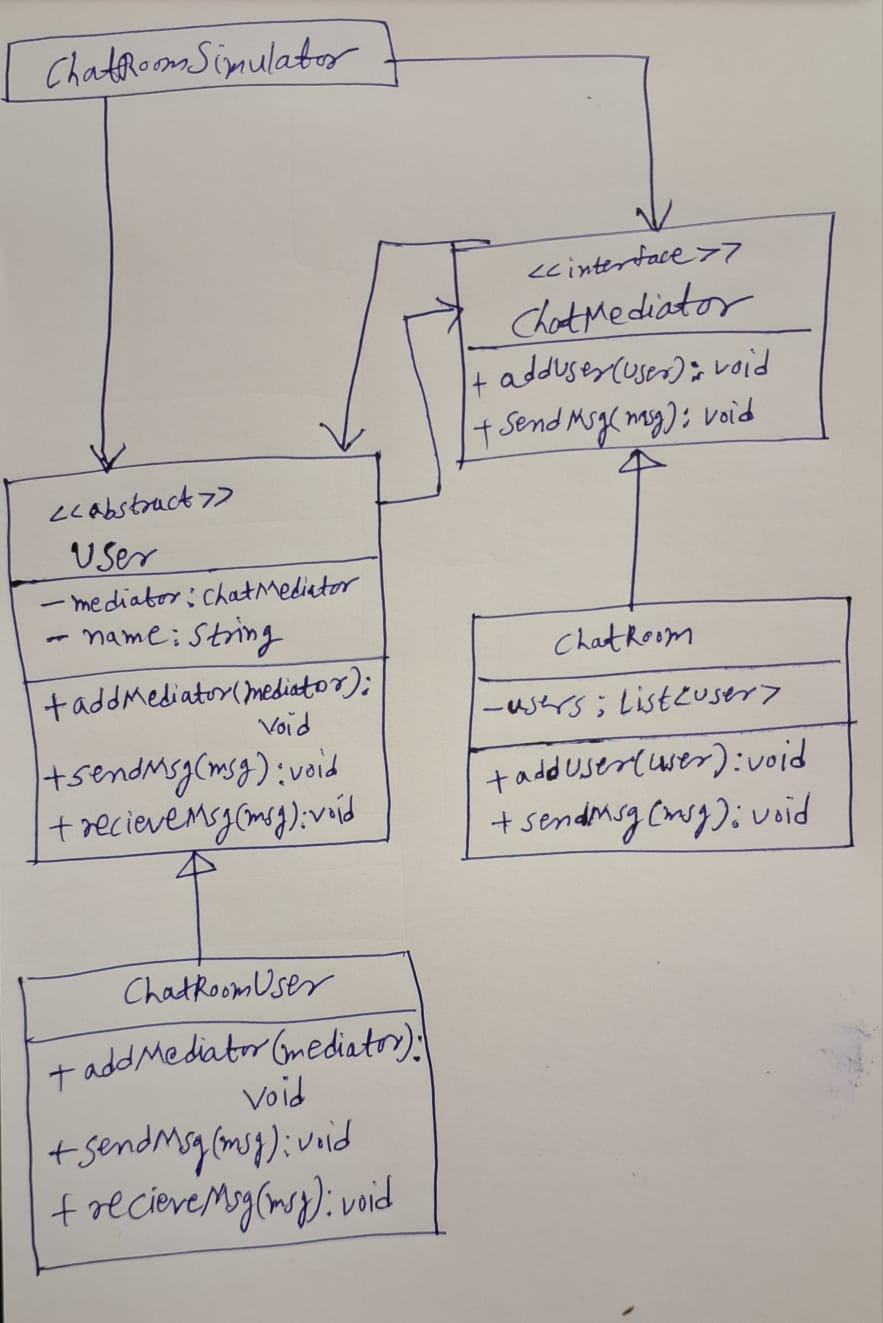 ChatRoomSimulator
<<interface>>
ChatMediator
+ addUser(user): void
+ sendMsg(msg): void
<<abstract>>
User
- mediator: ChatMediator
- name: String
+ addMediator(mediator):
void
+ sendMsg(msg): void
+ recieveMsg(msg): void
ChatRoom
- users: List<user>
+ addUser(user): void
+ sendMsg(msg): void
ChatRoomUser
+ addMediator(mediator):
void
+ sendMsg(msg): void
+ recieveMsg(msg): void